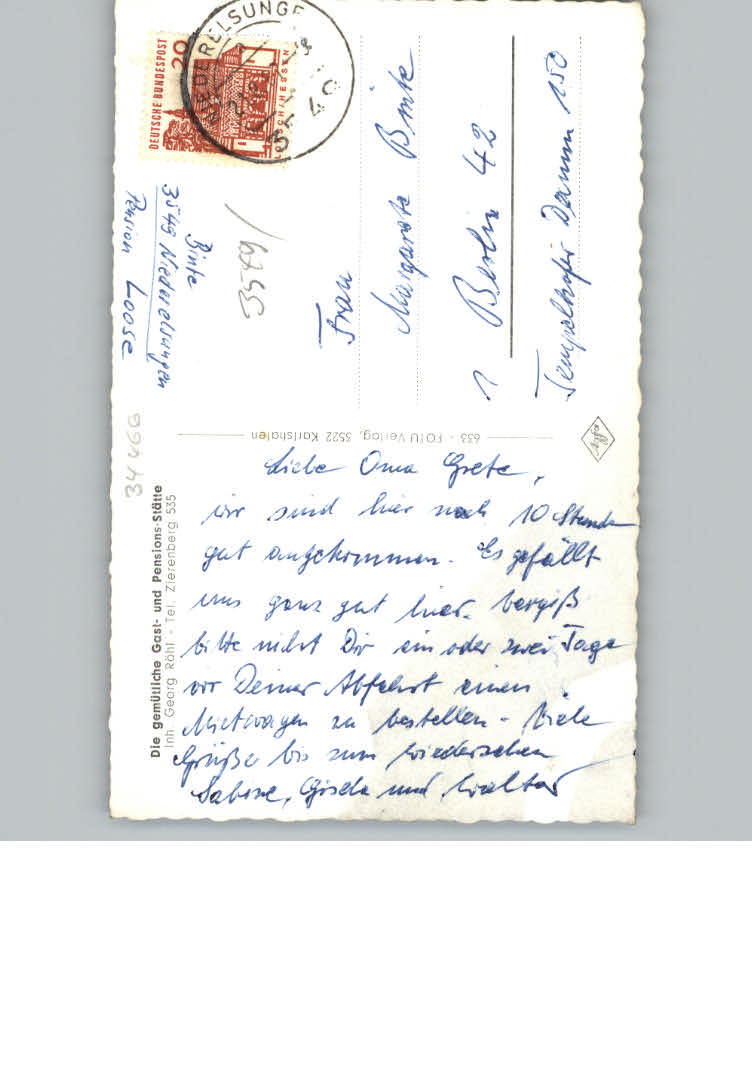 Liebe Oma Grete,
wir sind hier nach 10 Stunden
gut angekommen. Es gefällt
uns ganz gut hier. Vergiß
bitte nicht Dir ein oder zwei Tage
vor Deiner Abfahrt einen
Mietwagen zu bestellen - Viele
Grüße bis zum Wiedersehen
Sabine, Gisela und Walter
Die gemütliche Gast- und Pensions-Stätte
Inh. Georg Röhl - Tel. Zierenberg 535
633 - FOTU Verlag, 3522 Karlshafen
Binte
3549 Niederelsungen
Pension Loose
DEUTSCHE BUNDESPOST
20
LORSCH/HESSEN
NIEDERELSUNGE
35 49
Frau
Margarete Binte
1 Berlin 42
Tempelhofer Damm 150
3549
34466